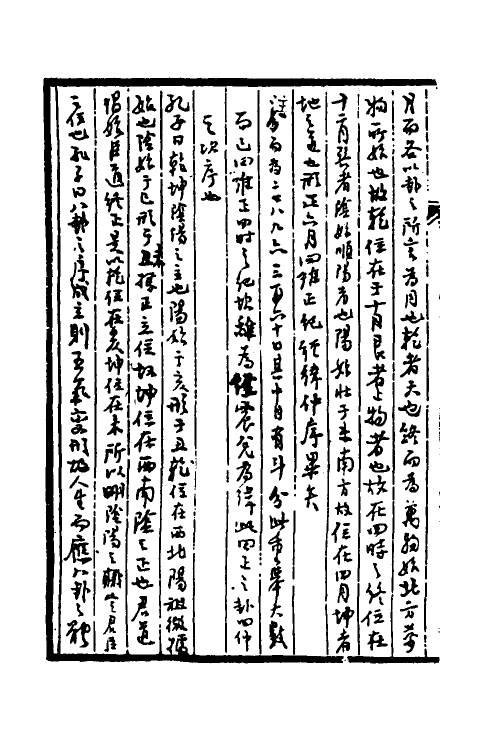 月而各以卦之所言為月也乾者天也終而為萬物始北方萬
物所始也故乾位在于十月艮者止物者也故在四時之終位在
十二月巽者陰始順陽者也陽始壯于東南方故位在四月坤者
地之道也形正六月四維正紀經緯仲序畢矣
而為二七八九六三百六十日且十日有斗分此重舉大數
而已四維正四時之紀坎離為經震兌為緯此四正之卦四仲
之次序也
孔子曰乾坤陰陽之主也陽始于亥形于丑乾位在西北陽祖微據
始也陰始于巳形于未據正立位故坤位在西南陰之正也君道
倡始臣道終正是以乾位在亥坤位在未所以明陰陽之職定君臣
之位也孔子曰八卦之序成立則五氣變形故人生而應八卦之體